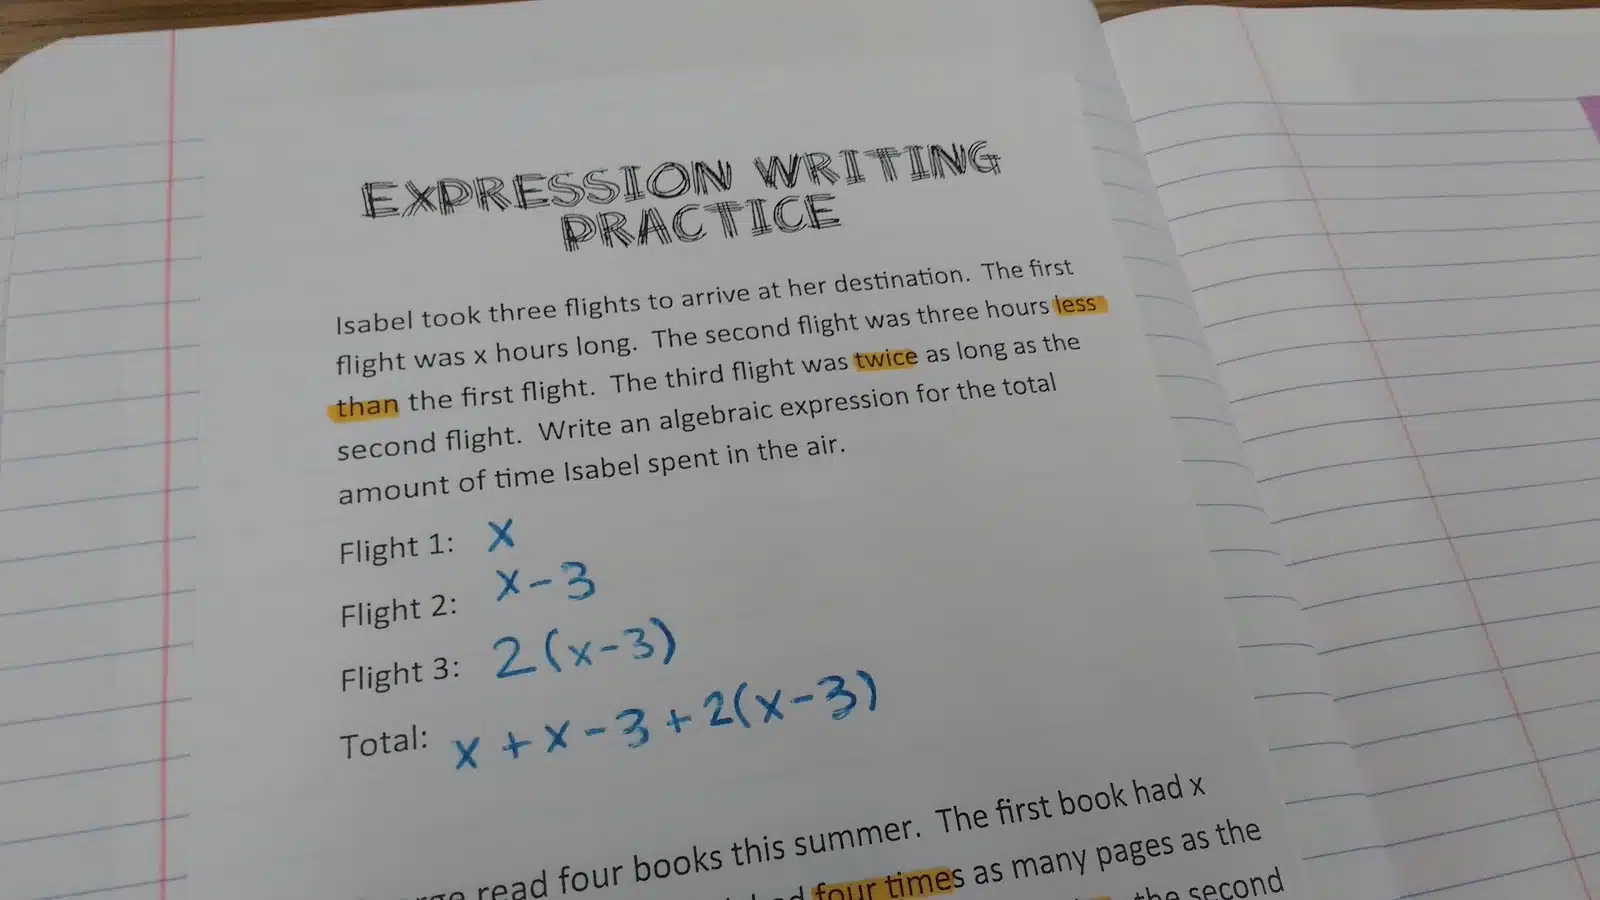 EXPRESSION WRITING
PRACTICE
Isabel took three flights to arrive at her destination. The first
flight was x hours long. The second flight was three hours less
than the first flight. The third flight was twice as long as the
second flight. Write an algebraic expression for the total
amount of time Isabel spent in the air.
Flight 1: x
Flight 2: x-3
Flight 3: 2(x-3)
Total: x + x - 3 + 2(x-3)
read four books this summer. The first book had x
four times as many pages as the
the second